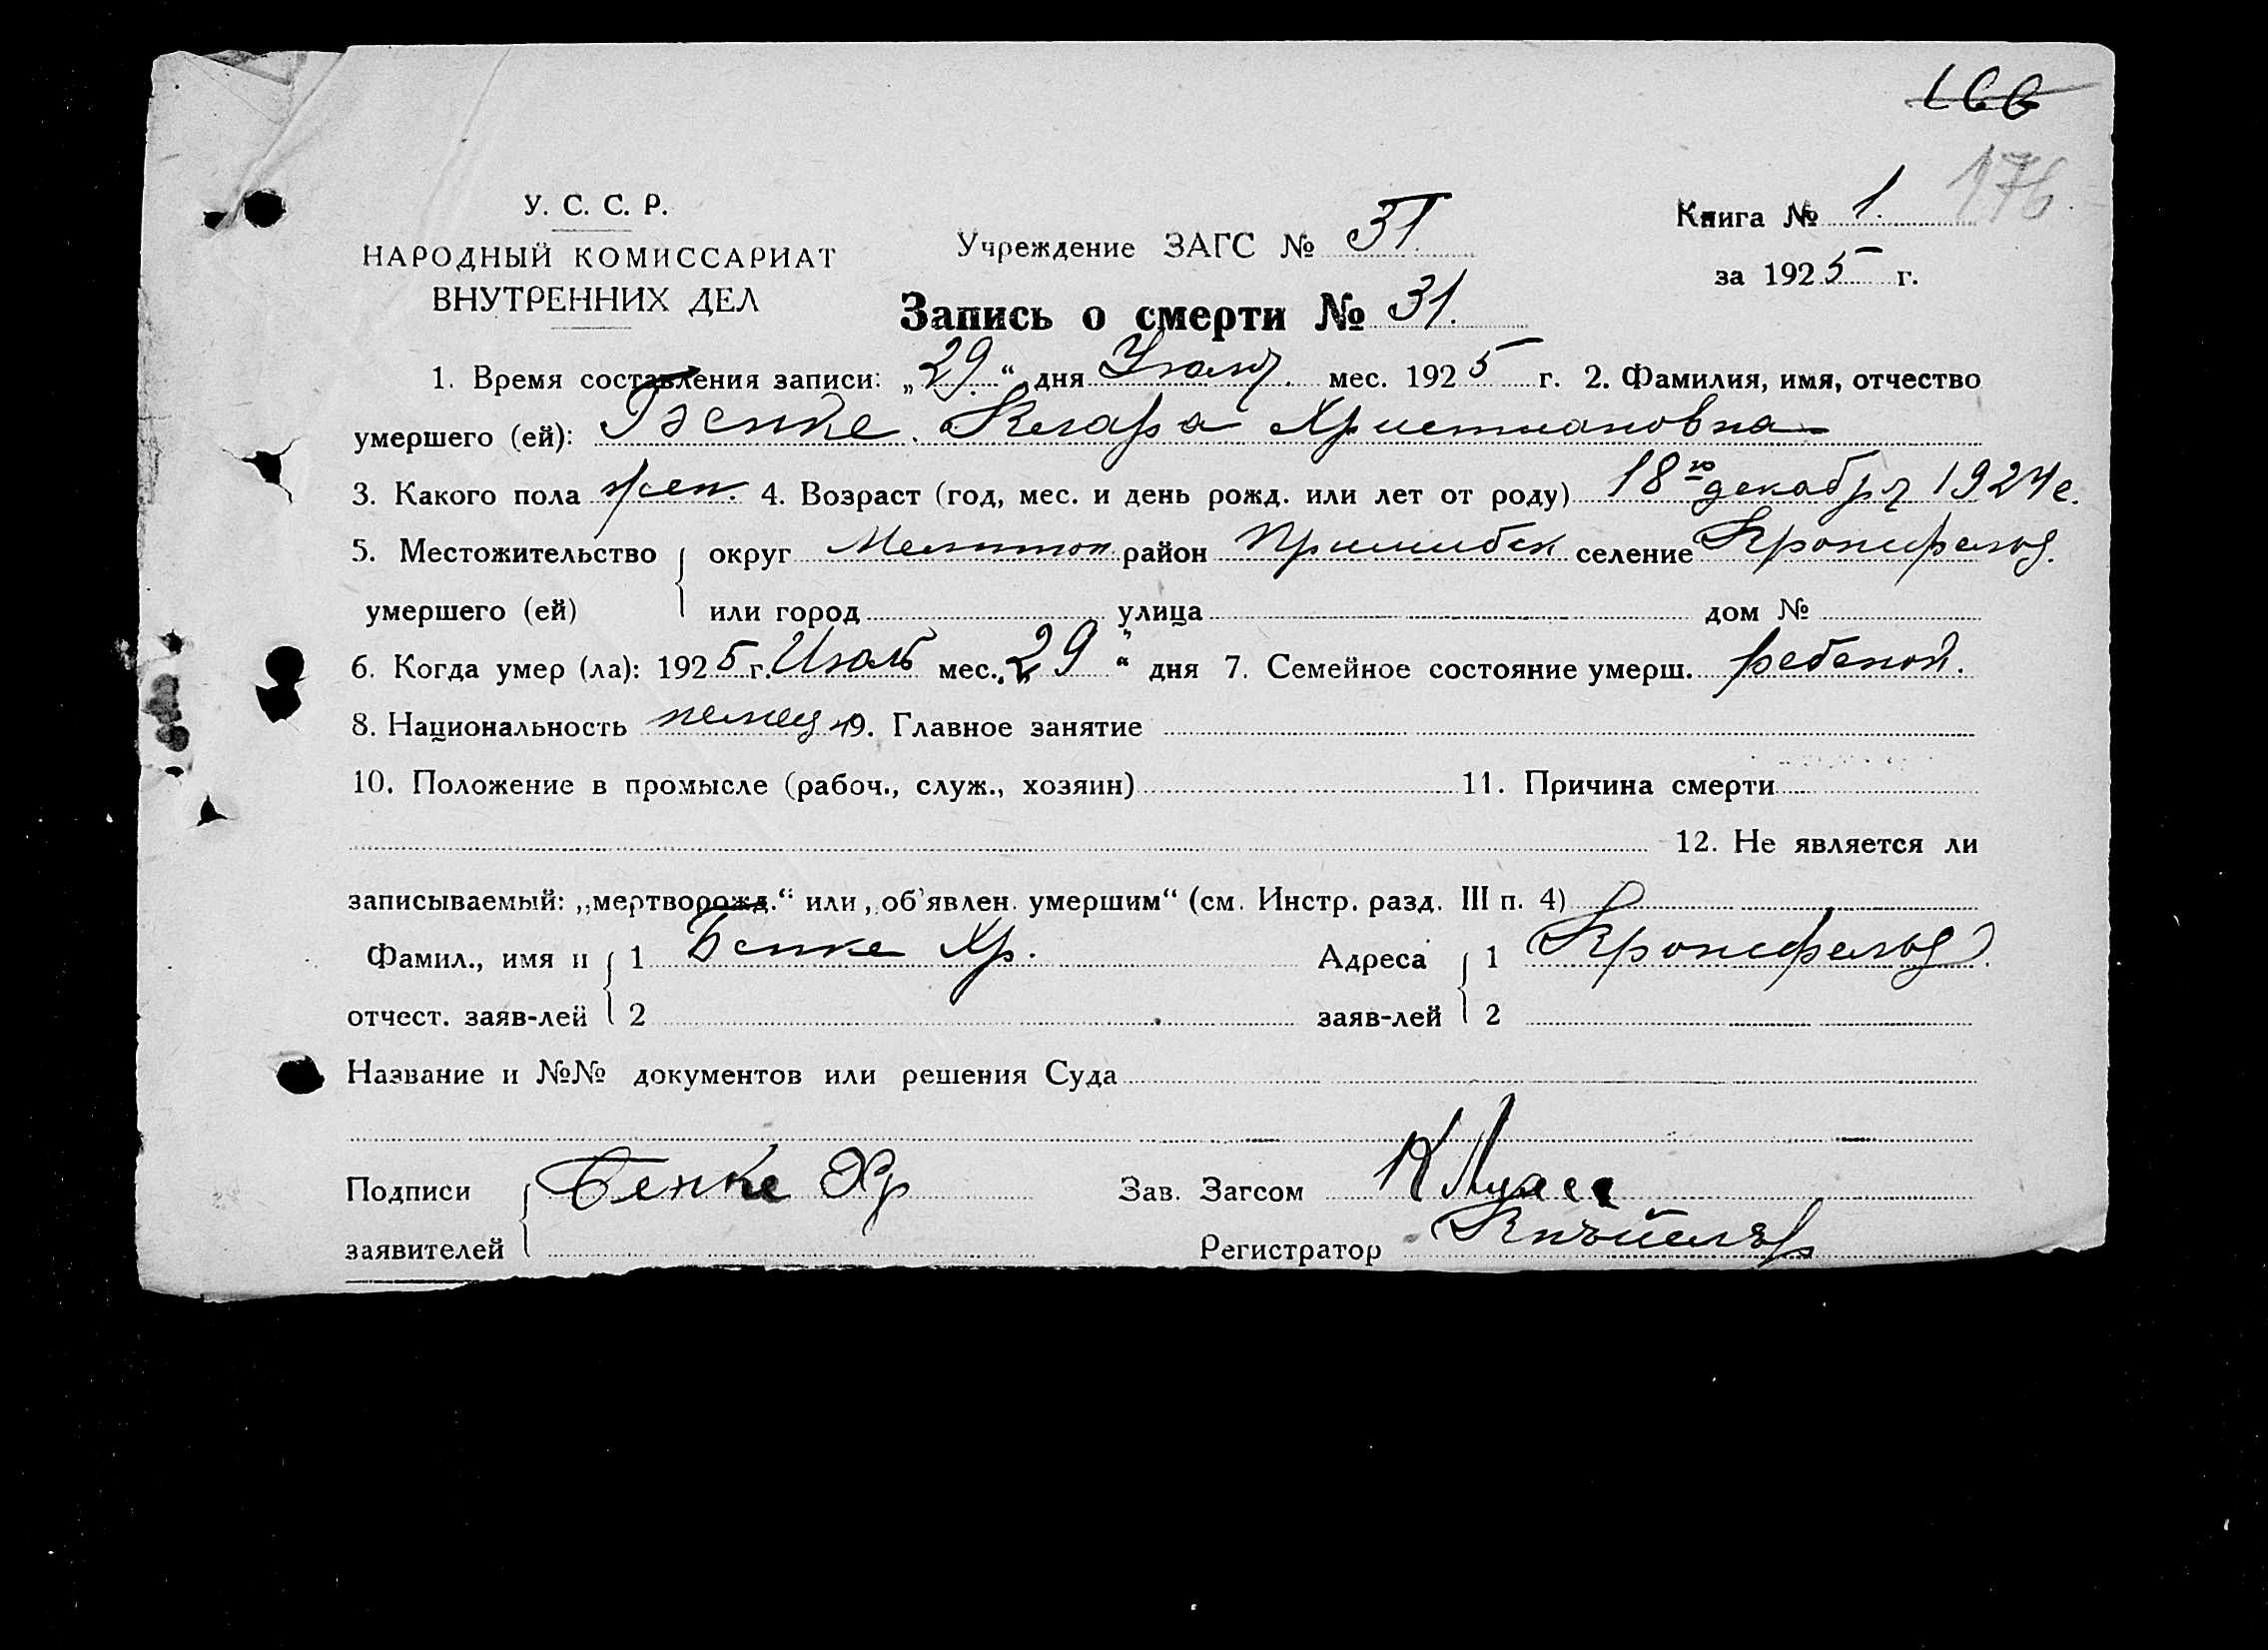 166
176
У. С. С. Р.
НАРОДНЫЙ КОМИССАРИАТ
ВНУТРЕННИХ ДЕЛ
Учреждение ЗАГС №
Книга № 1.
за 1925 г.
Запись о смерти № 31.
1. Время составления записи: „29.“ дня Июля мес. 1925 г. 2. Фамилия, имя, отчество
умершего (ей): Бенке. Клара Христиановна
3. Какого пола жен. 4. Возраст (год, мес. и день рожд. или лет от роду) 18го декабря 1924 г.
5. Местожительство округ Мелитоп. район Пришибск селение Кронсфельд.
умершего (ей) или город улица дом №
6. Когда умер (ла): 1925 г. Июль мес. „29“ дня 7. Семейное состояние умерш. ребенок.
8. Национальность немец 9. Главное занятие
10. Положение в промысле (рабоч., служ., хозяин) 11. Причина смерти
12. Не является ли
записываемый: „мертворожд.“ или „об'явлен умершим“ (см. Инстр. разд. III п. 4)
Фамил., имя и 1 Бенке Хр. Адреса 1 Кронсфельд.
отчест. заяв-лей 2 заяв-лей 2
Название и №№ документов или решения Суда
Подписи Бенке Хр Зав. Загсом
заявителей Регистратор